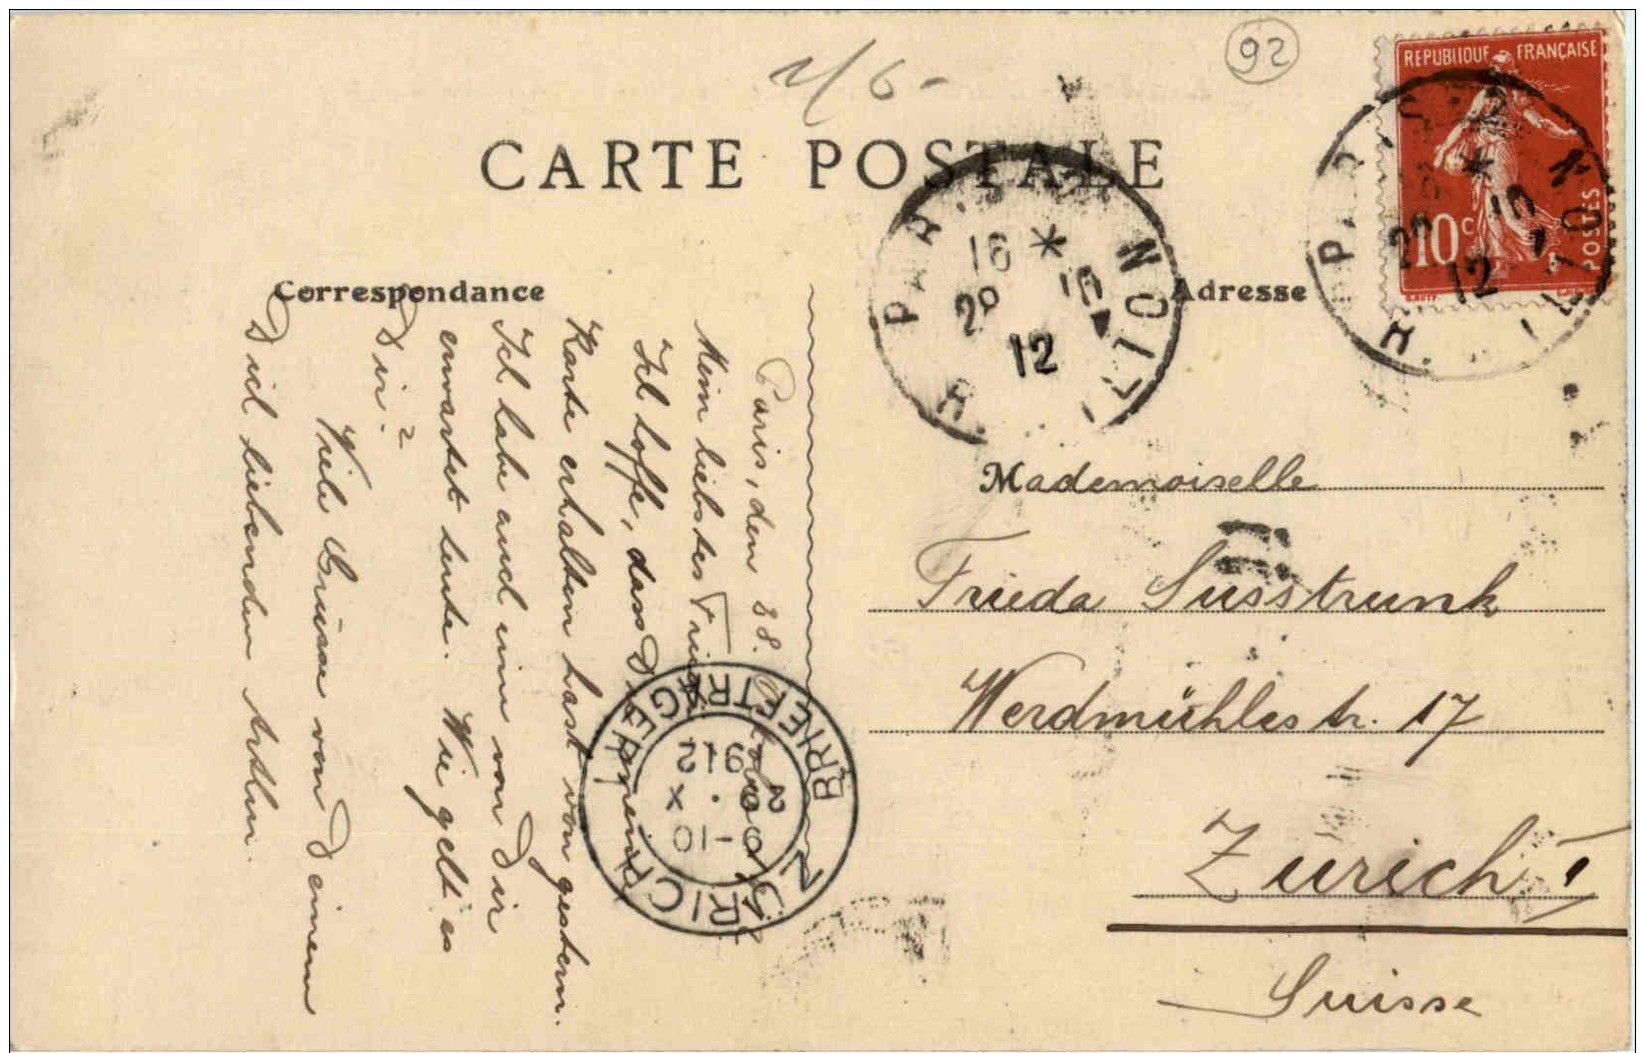 92
REPUBLIQUE FRANÇAISE
10c
POSTES
CARTE POSTALE
PARIS
16 *
29 10
12
Correspondance
Adresse
Paris, den 28. Oktober 1912
Mein liebstes
Ich hoffe, dass D meine
Karte erhalten hast von gestern.
Ich habe auch eine von Dir
erwartet heute. Wie geht es
Dir?
Viele Grüsse von Deinem
Dich liebenden
ZÜRICH
BRIEFTRÄGER
9-10
X
912
Mademoiselle
Frieda Susstrunk
Werdmühlestr. 17
Zürich I
Suisse